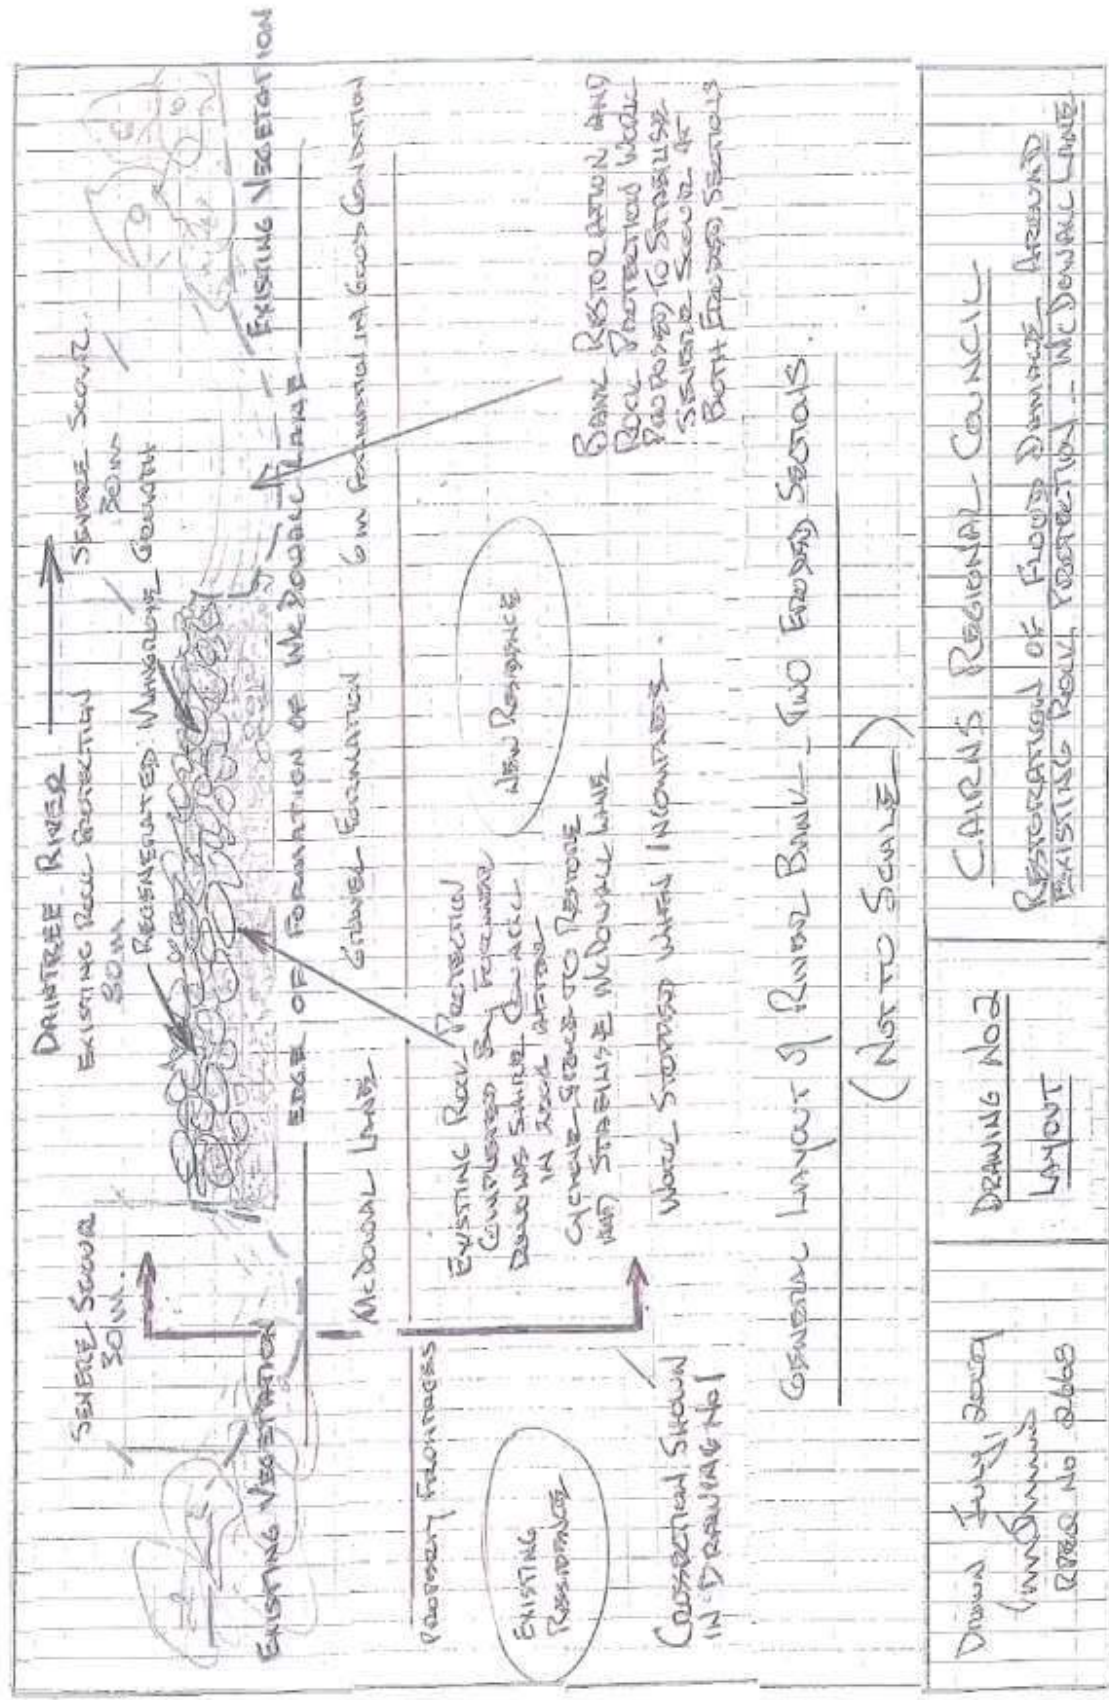 DAINTREE RIVER
SEVERE SCOUR
30 m.
EXISTING ROCK PROTECTION
80 m
SEVERE SCOUR.
30m
REGENERATED MANGROVE GROWTH
EXISTING VEGETATION
EXISTING VEGETATION
EDGE OF FORMATION OF McDOWALL LANE
McDOWALL LANE
GRAVEL FORMATION
6m FORMATION IN GOOD CONDITION
PROPERTY FRONTAGES
EXISTING
RESIDENCE
EXISTING ROCK PROTECTION
COMPLETED BY FORMER
DOUGLAS SHIRE COUNCIL
IN AFTER
CYCLONE TO RESTORE
AND STABILISE McDOWALL LANE
WORK STOPPED WHEN INCOMPLETE.
NEW RESIDENCE
BANK RESTORATION AND
ROCK PROTECTION WORK
PROPOSED TO STABILISE
SEVERE SCOUR AT
BOTH ERODED SECTIONS
CROSSECTION SHOWN
IN DRAWING No 1
GENERAL LAYOUT OF RIVER BANK - TWO ERODED SECTIONS.
(NOT TO SCALE)
DRAWN JULY, 2009
RPEQ No 2668
DRAWING No 2
LAYOUT
CAIRNS REGIONAL COUNCIL
RESTORATION OF FLOOD DAMAGE AROUND
EXISTING ROCK PROTECTION - McDOWALL LANE